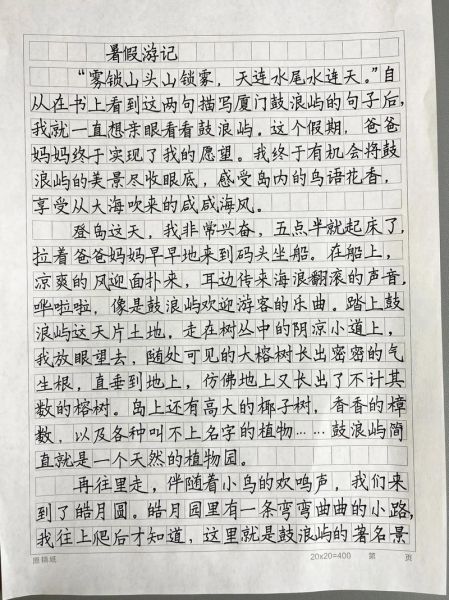 暑假游记
“雾锁山头山锁雾，天连水尾水连天。”自
从在书上看到这两句描写厦门鼓浪屿的句子后，
我就一直想亲眼看看鼓浪屿。这个假期，爸爸
妈妈终于实现了我的愿望。我终于有机会将鼓
浪屿的美景尽收眼底，感受岛内的鸟语花香，
享受从大海吹来的咸咸海风。
登岛这天，我非常兴奋，五点半就起床了，
拉着爸爸妈妈早早地来到码头坐船。在船上，
凉爽的风迎面扑来，耳边传来海浪翻滚的声音，
哗啦啦，像是鼓浪屿欢迎游客的乐曲。踏上鼓
浪屿这天片土地，走在树丛中的阴凉小道上，
我放眼望去，随处可见的大榕树长出密密的气
生根，直垂到地上，仿佛地上又长出了不计其
数的榕树。岛上还有高大的椰子树，香香的樟
数，以及各种叫不上名字的植物……鼓浪屿简
直就是一个天然的植物园。
再往里走，伴随着小鸟的欢鸣声，我们来
到了皓月圆。皓月园里有一条弯弯曲曲的小路，
我往上爬后才知道，这里就是鼓浪屿的著名景
20x20=400 第 页